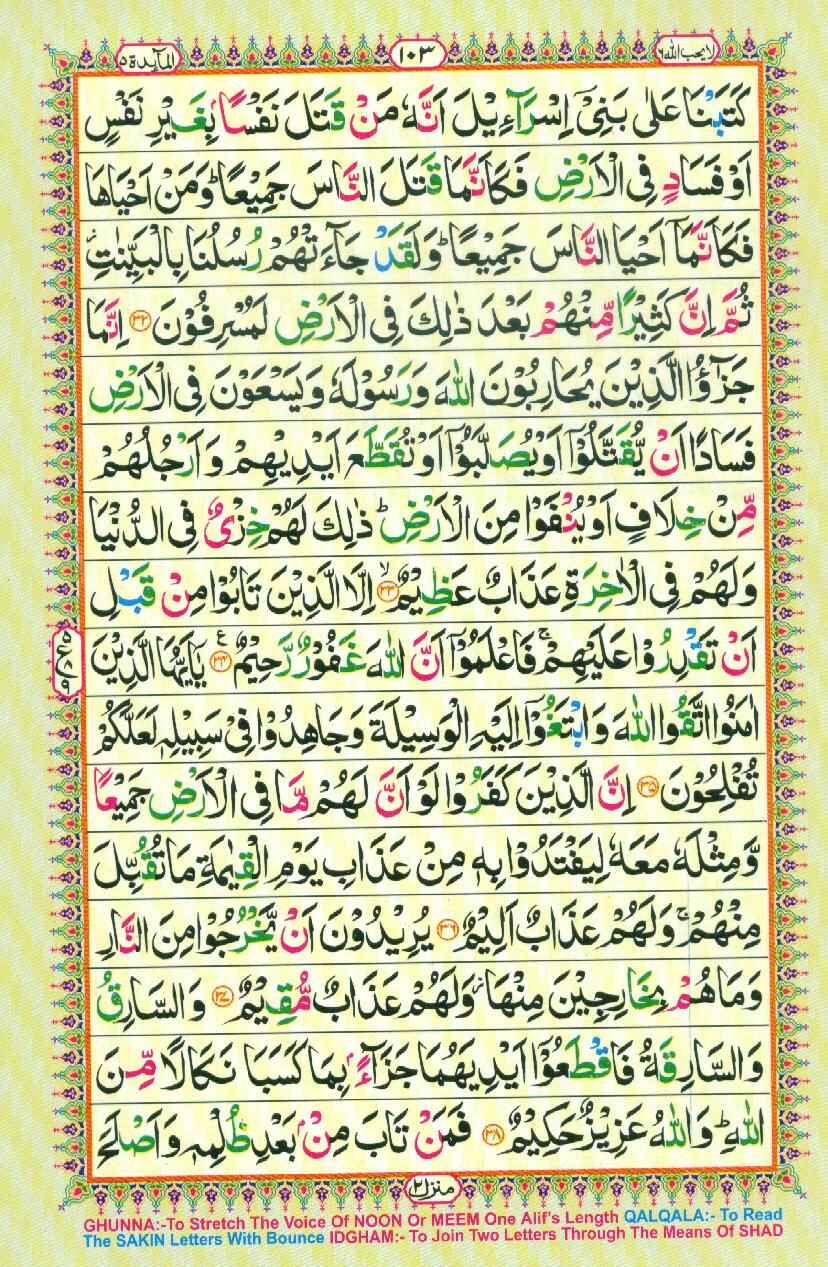 لا يحب الله ٦
١٠٣
المآىدة ٥
كَتَبْنَا عَلٰى بَنِیْۤ اِسْرَآءِیْلَ اَنَّهٗ مَنْ قَتَلَ نَفْسًۢا بِغَیْرِ نَفْسٍ
اَوْ فَسَادٍ فِی الْاَرْضِ فَكَاَنَّمَا قَتَلَ النَّاسَ جَمِیْعًا ؕ وَمَنْ اَحْیَاهَا
فَكَاَنَّمَاۤ اَحْیَا النَّاسَ جَمِیْعًا ؕ وَلَقَدْ جَآءَتْهُمْ رُسُلُنَا بِالْبَیِّنٰتِ ؗ
ثُمَّ اِنَّ كَثِیْرًا مِّنْهُمْ بَعْدَ ذٰلِكَ فِی الْاَرْضِ لَمُسْرِفُوْنَ ٣٢ اِنَّمَا
جَزٰٓؤُا الَّذِیْنَ یُحَارِبُوْنَ اللّٰهَ وَرَسُوْلَهٗ وَیَسْعَوْنَ فِی الْاَرْضِ
فَسَادًا اَنْ یُّقَتَّلُوْۤا اَوْ یُصَلَّبُوْۤا اَوْ تُقَطَّعَ اَیْدِیْهِمْ وَاَرْجُلُهُمْ
مِّنْ خِلَافٍ اَوْ یُنْفَوْا مِنَ الْاَرْضِ ؕ ذٰلِكَ لَهُمْ خِزْیٌ فِی الدُّنْیَا
وَلَهُمْ فِی الْاٰخِرَةِ عَذَابٌ عَظِیْمٌ ۙ ٣٣ اِلَّا الَّذِیْنَ تَابُوْا مِنْ قَبْلِ
اَنْ تَقْدِرُوْا عَلَیْهِمْ ۚ فَاعْلَمُوْۤا اَنَّ اللّٰهَ غَفُوْرٌ رَّحِیْمٌ ٣٤ ع یٰۤاَیُّهَا الَّذِیْنَ
اٰمَنُوا اتَّقُوا اللّٰهَ وَابْتَغُوْۤا اِلَیْهِ الْوَسِیْلَةَ وَجَاهِدُوْا فِیْ سَبِیْلِهٖ لَعَلَّكُمْ
تُفْلِحُوْنَ ٣٥ اِنَّ الَّذِیْنَ كَفَرُوْا لَوْ اَنَّ لَهُمْ مَّا فِی الْاَرْضِ جَمِیْعًا
وَّمِثْلَهٗ مَعَهٗ لِیَفْتَدُوْا بِهٖ مِنْ عَذَابِ یَوْمِ الْقِیٰمَةِ مَا تُقُبِّلَ
مِنْهُمْ ۚ وَلَهُمْ عَذَابٌ اَلِیْمٌ ٣٦ یُرِیْدُوْنَ اَنْ یَّخْرُجُوْا مِنَ النَّارِ
وَمَا هُمْ بِخَارِجِیْنَ مِنْهَا ؗ وَلَهُمْ عَذَابٌ مُّقِیْمٌ ٣٧ وَالسَّارِقُ
وَالسَّارِقَةُ فَاقْطَعُوْۤا اَیْدِیَهُمَا جَزَآءًۢ بِمَا كَسَبَا نَكَالًا مِّنَ
اللّٰهِ ؕ وَاللّٰهُ عَزِیْزٌ حَكِیْمٌ ٣٨ فَمَنْ تَابَ مِنْۢ بَعْدِ ظُلْمِهٖ وَاَصْلَحَ
٥
ع
٨
٩
منزل ٢
GHUNNA:-To Stretch The Voice Of NOON Or MEEM One Alif's Length QALQALA:- To Read
The SAKIN Letters With Bounce IDGHAM:- To Join Two Letters Through The Means Of SHAD